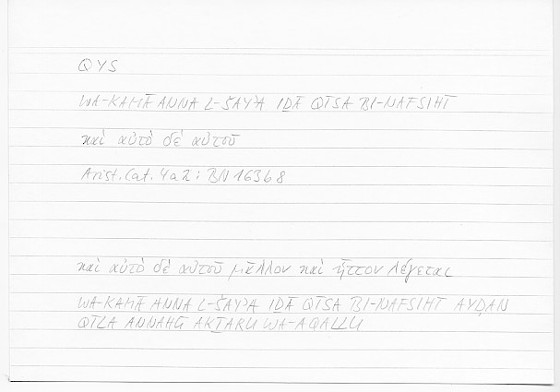 QYS
WA-KAMĀ ANNA L-ŠAY'A IḎĀ QĪSA BI-NAFSIHĪ
καὶ αὐτὸ δὲ αὑτοῦ
Arist. Cat. 4a2: BN 16368
καὶ αὐτὸ δὲ αὑτοῦ μᾶλλον καὶ ἧττον λέγεται
WA-KAMĀ ANNA L-ŠAY'A IḎĀ QĪSA BI-NAFSIHĪ AYḌAN
QĪLA ANNAHŪ AKṮARU WA-AQALLU